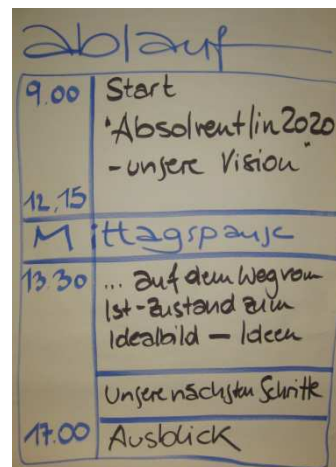 ablauf
9.00 Start
"Absolvent/in 2020
- unsere Vision"
12.15
Mittagspause
13.30 ... auf dem Weg vom
Ist-Zustand zum
Idealbild – Ideen
Unsere nächsten Schritte
17.00 Ausblick